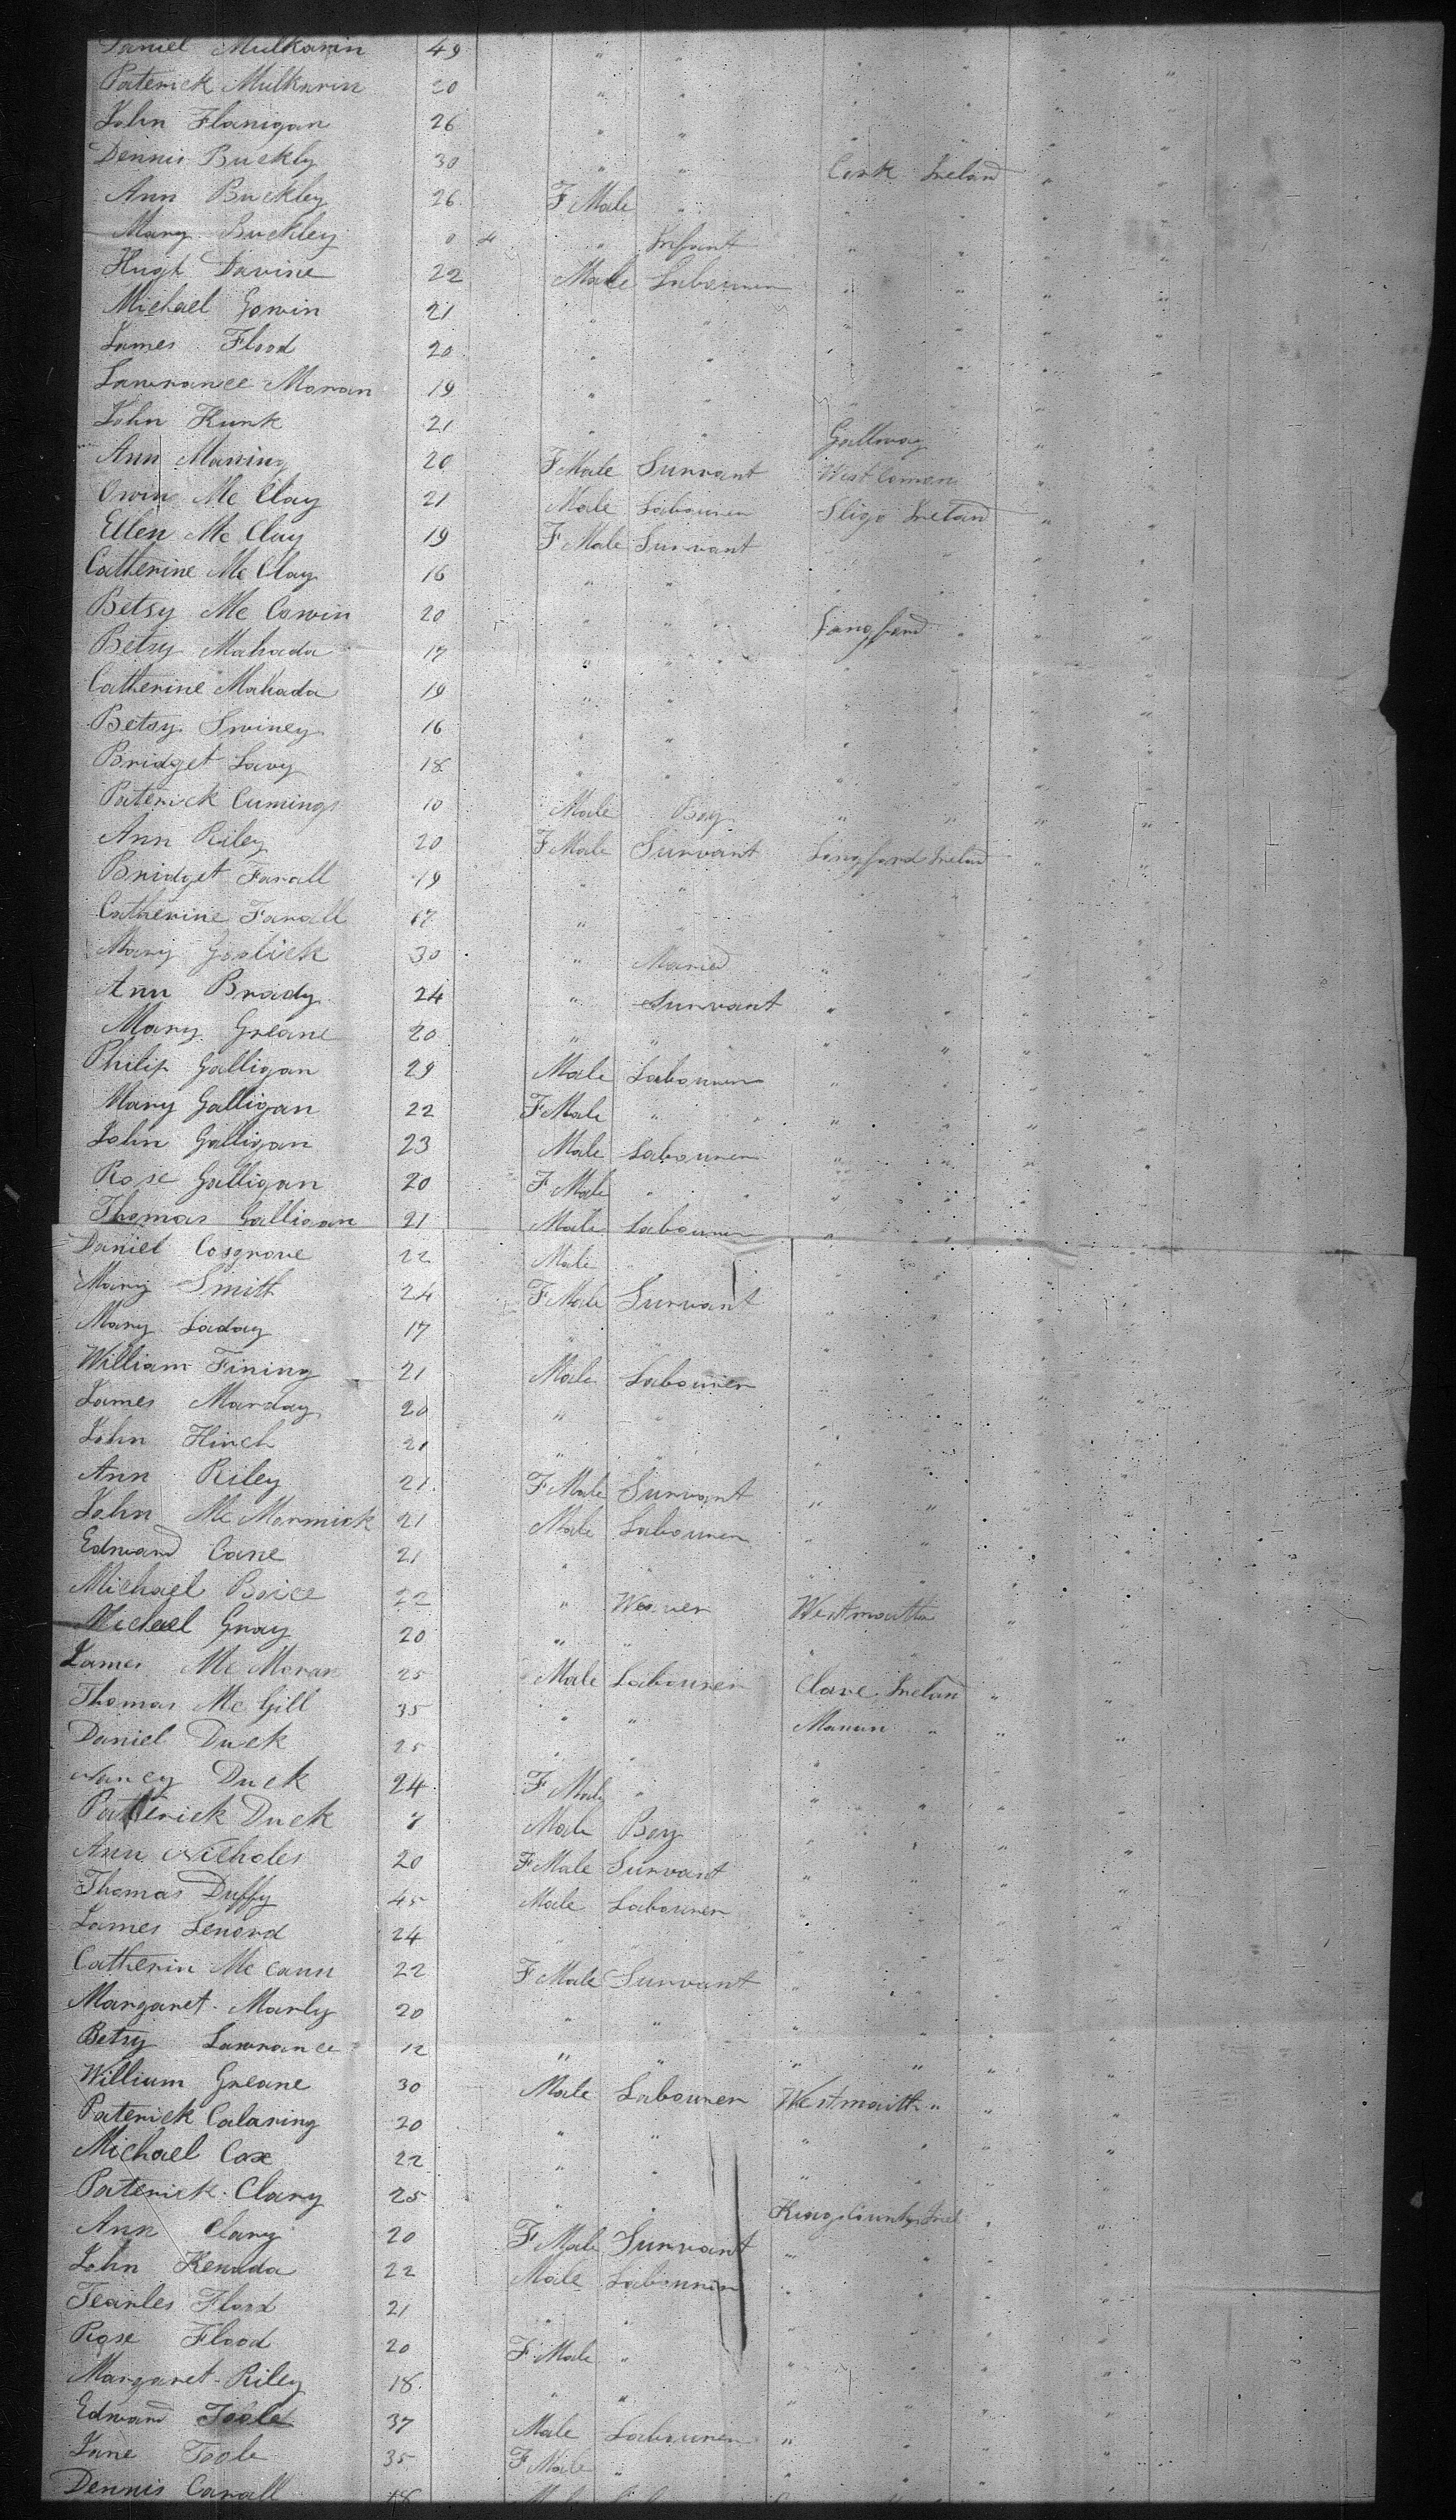 Daniel Mulkarin 49 " " " " "
Paterick Mulkarin 20 " " " " "
John Flanigan 26 " " " " "
Dennis Buckly 30 " " Cork Ireland " "
Ann Buckley 26 F Male " " " "
Mary Buckley 0 4 " Infant " " "
Hugh Davine 22 Male Labourer " " " "
Michael Gowin 21 " " " " " "
James Flood 20 " " " " " "
Lawrance Moran 19 " " " " "
John Kunk 21 " " Gallway " "
Ann Maning 20 F Male Survant West Comen " "
Owin Mc Clay 21 Male Labourer Sligo Ireland " "
Ellen Mc Clay 19 F Male Survant " " " "
Catherine Mc Clay 16 " " " " " "
Betsy Mc Cowin 20 " " Longford " " "
Betsy Mahada 17 " " " " " "
Catherine Mahada 19 " " " " " "
Betsy Swiney 16 " " " " " "
Bridget Lavy 18 " " " " " "
Paterick Cumings 10 Male Boy " " " "
Ann Riley 20 F Male Survant Longford Ireland " "
Bridget Farall 19 " " " " " "
Catherine Farall 17 " " " " " "
Mary Goslick 30 " Maried " " " "
Ann Brady 24 " Survant " " " "
Mary Greane 20 " " " " " "
Philip Galligan 29 Male Labourer " " " "
Mary Galligan 22 F Male " " " " "
John Galligan 23 Male Labourer " " " "
Rose Galligan 20 F Male " " " " "
Thomas Galligan 21 Male Labourer " " " "
Daniel Cosgrove 22 Male " " " " "
Mary Smith 24 F Male Survant " " " "
Mary Laday 17 " " " " " "
William Fining 21 Male Labourer " " " "
James Marday 20 " " " " " "
John Hinch 21 " " " " " "
Ann Riley 21 F Male Survant " " " "
John Mc Mormick 21 Male Labourer " " " "
Edward Cane 21 " " " " " "
Michael Boice 22 " Weaver Westmouth " "
Michael Gray 20 " " " " " "
James Mc Moran 25 Male Labourer Clare Ireland " "
Thomas Mc Gill 35 " " " " "
Daniel Duck 25 " " " " " "
Nancy Duck 24 F Male " " " " "
Patterick Duck 7 Male Boy " " " "
Ann Nicholes 20 F Male Survant " " " "
Thomas Duffy 45 Male Labourer " " " "
James Lenord 24 " " " " " "
Catherin Mc cann 22 F Male Survant " " " "
Margaret Marly 20 " " " " " "
Betsy Lawrance 12 " " " " " "
William Greane 30 Male Labourer Westmouth " " "
Paterick Calaring 20 " " " " " "
Michael Cox 22 " " " " " "
Paterick Clary 25 " " Kings County Irel " "
Ann Clary 20 F Male Survant " " " "
John Kenada 22 Male Labourer " " " "
Tearles Flood 21 " " " " " "
Rose Flood 20 F Male " " " " "
Margaret Riley 18 " " " " " "
Edward Toole 37 Male Labourer " " " "
Jane Toole 35 F Male " " " " "
Dennis Carall 18